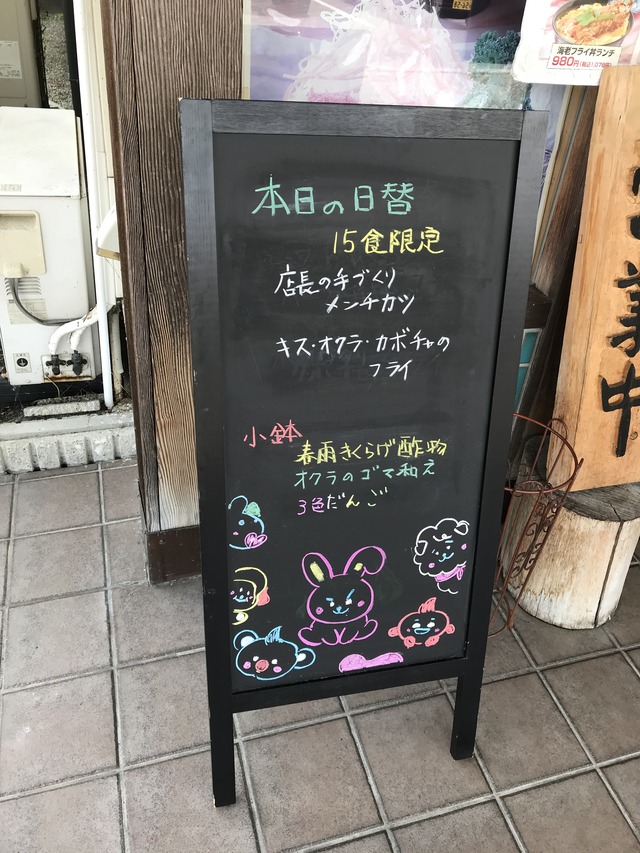 海老フライ丼ランチ
980円(税込1,078円)
本日の日替
15食限定
店長の手づくり
メンチカツ
キス・オクラ・カボチャの
フライ
小鉢
春雨きくらげ酢物
オクラのゴマ和え
3色だんご
業中